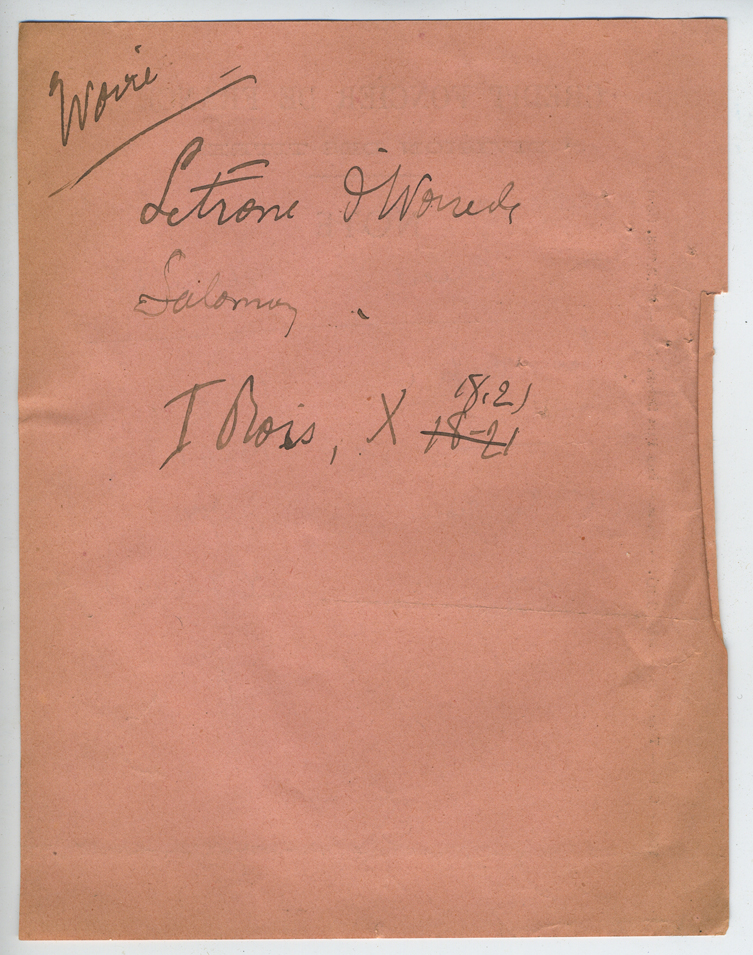 Ivoire
Le trône d'Ivoire de
Salomon.
I Rois, X 18-21
18, 21